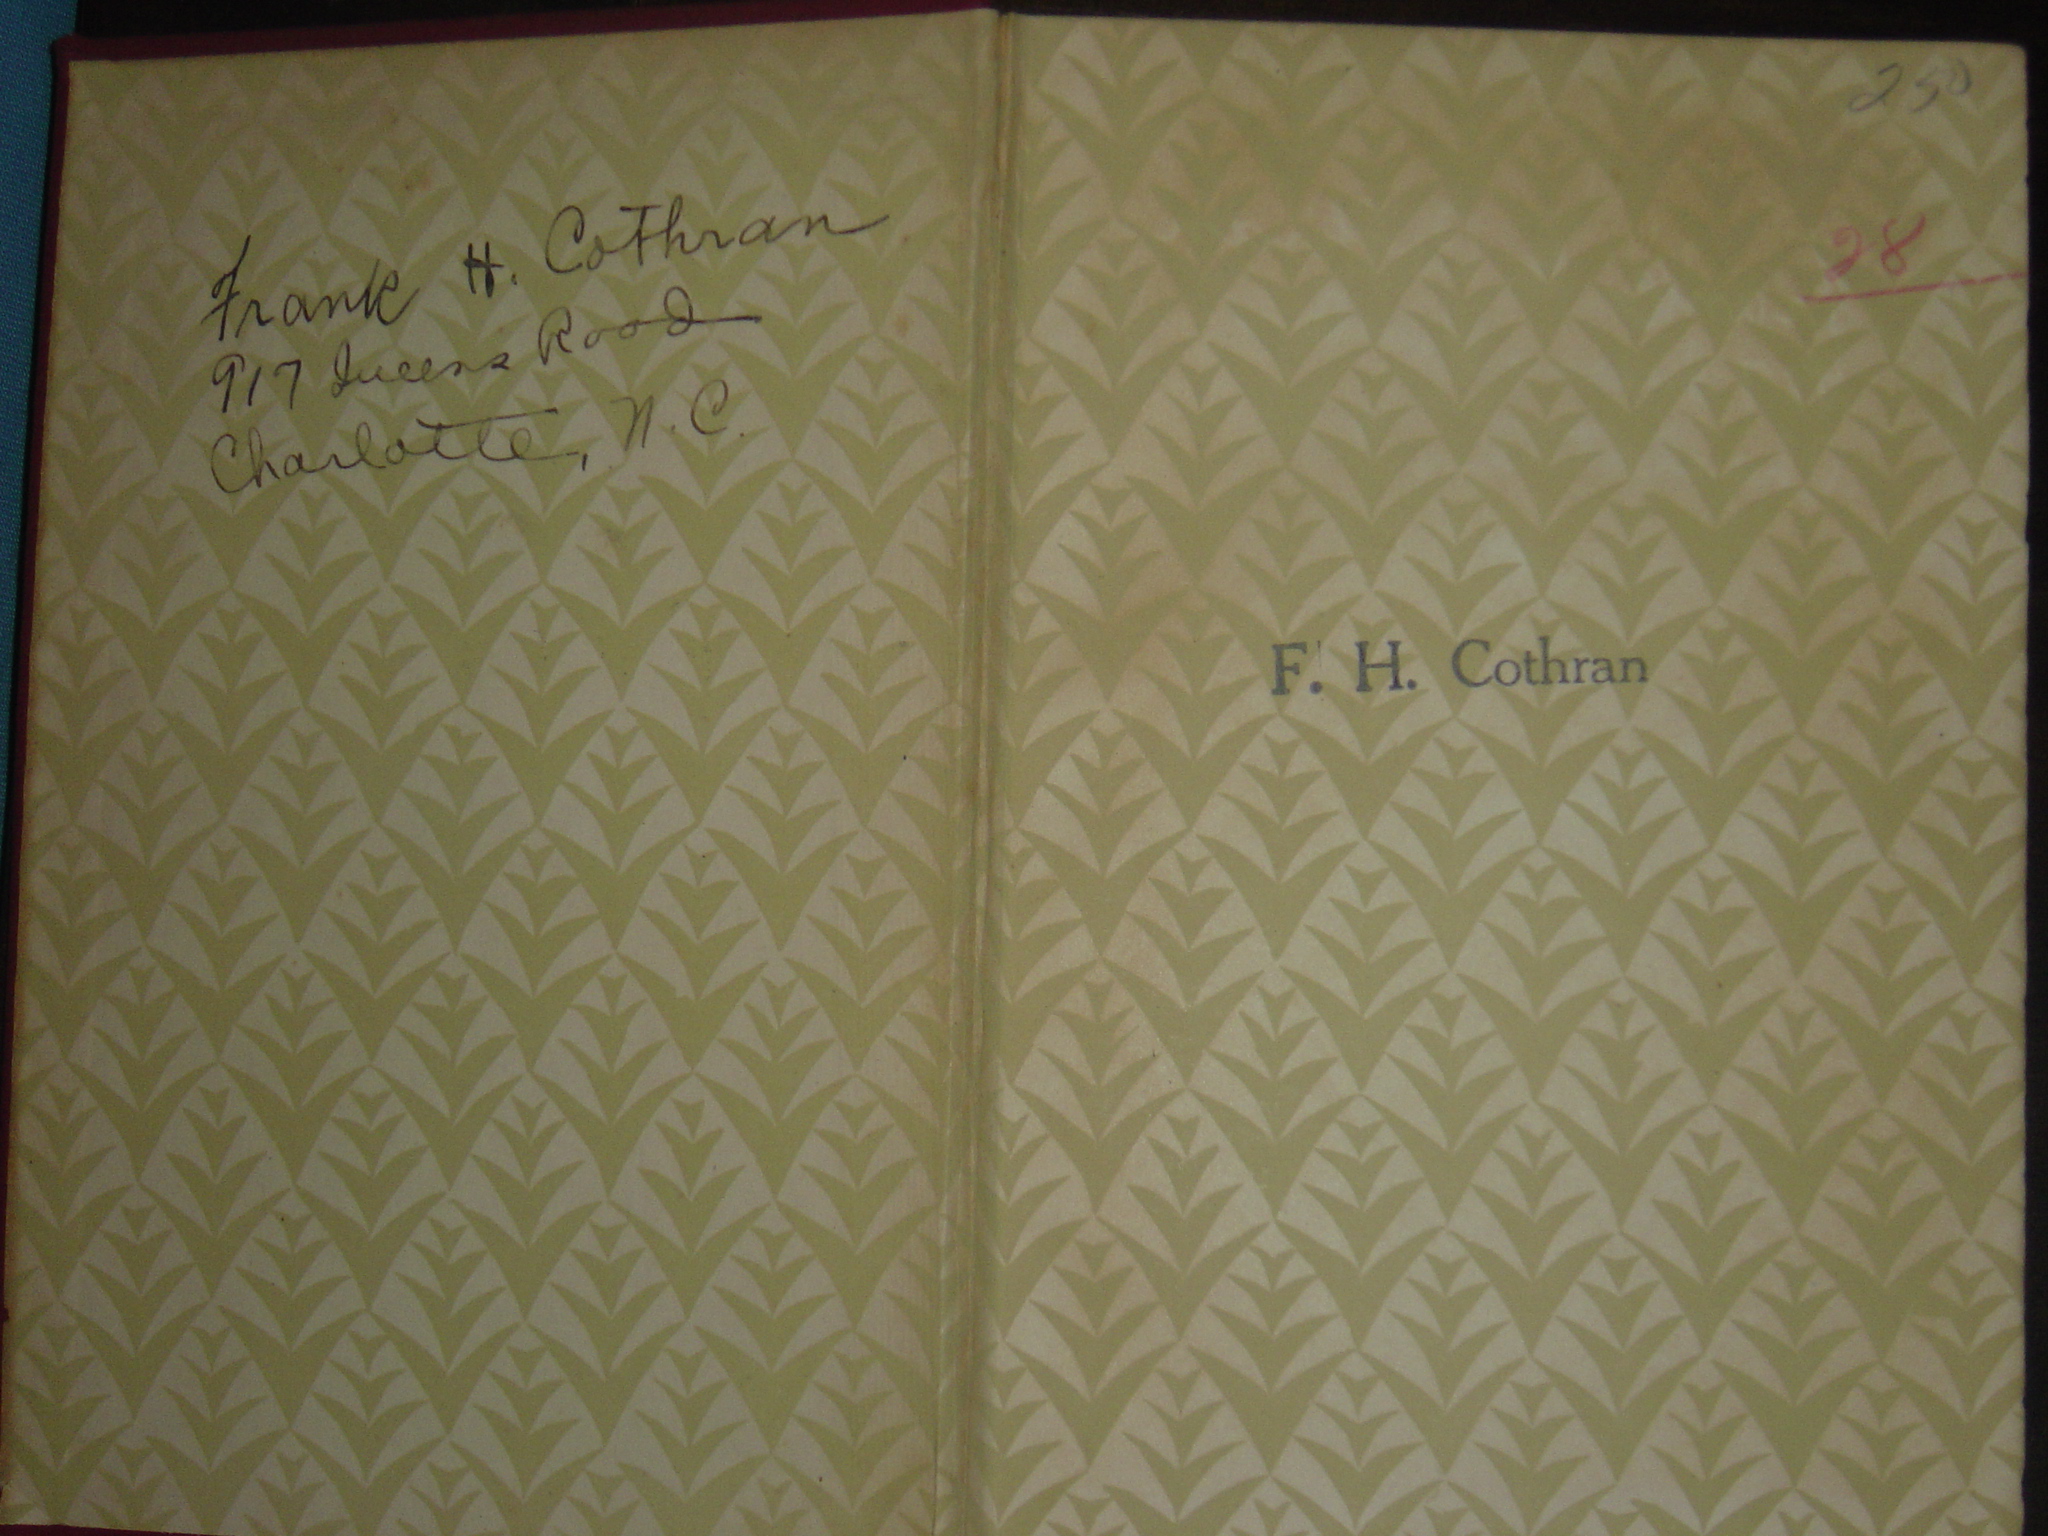 Frank H. Cothran
917 Queens Road
Charlotte, N.C.
250
28
F. H. Cothran